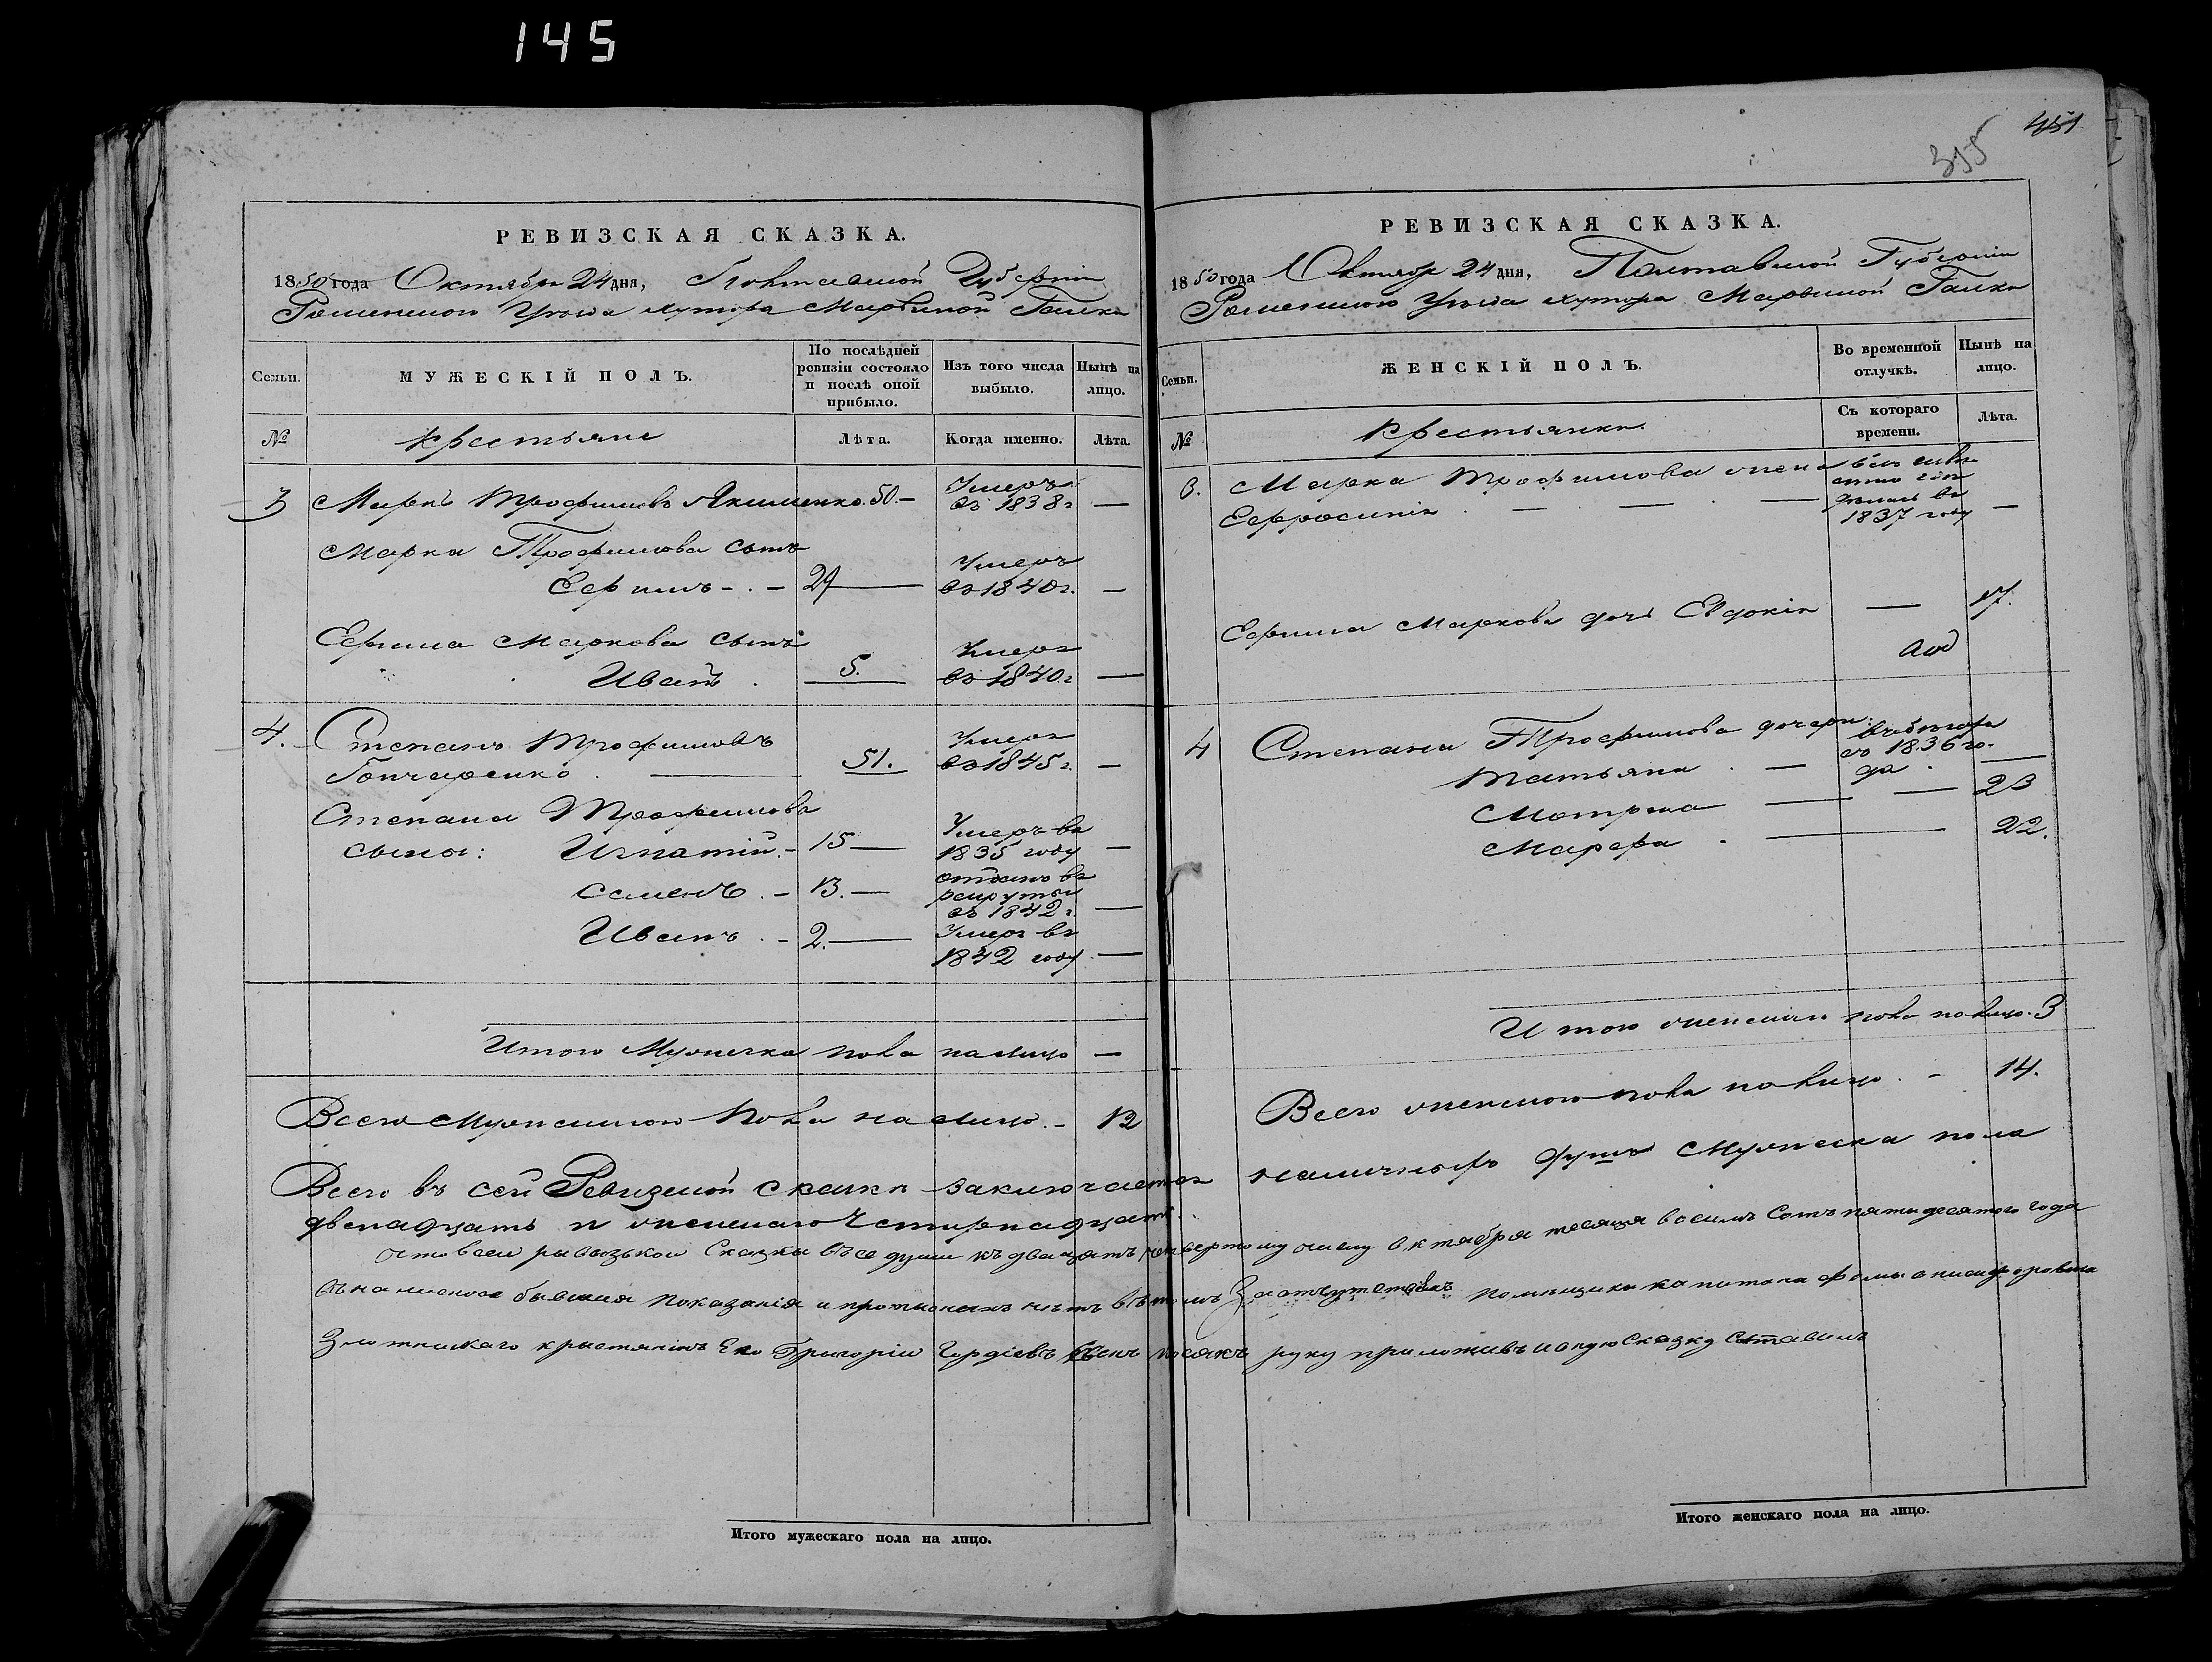 145
451
355
РЕВИЗСКАЯ СКАЗКА.
1850 года Октября 24 дня, Полтавской Губернiи
Роменского Уѣзда хутора Марьиной Галки
Семьи. МУЖЕСКІЙ ПОЛЪ. По послѣдней ревизіи состояло и послѣ оной прибыло. Изъ того числа выбыло. Нынѣ на лицо.
№ Крестьяне Лѣта. Когда именно. Лѣта.
3 Маркъ Трофимовъ Якименко. 50. — Умеръ въ 1838 г —
Марка Трофимова сынъ
Ефимъ - . - 29 — Умеръ въ 1840 г. —
Ефима Маркова сынъ
Иванъ . 5. Умеръ въ 1840. г —
4. Степанъ Трофимовъ
Гончаренко . — 51. Умеръ въ 1845 г. —
Степана Трофимова
сыны: Игнатій. - 15 — Умеръ въ 1835 году —
Семенъ . - 13. — отданъ въ рекруты въ 1842 г. —
Иванъ . - 2. — Умеръ въ 1842 году —
Итого Мужеска пола на лицо —
Всего Мужеского Пола на лицо. - 12
РЕВИЗСКАЯ СКАЗКА.
1850 года Октября 24 дня, Полтавской Губерніи
Роменского Уѣзда хутора Марьиной Галки
Семьи. ЖЕНСКІЙ ПОЛЪ. Во временной отлучкѣ. Нынѣ на лицо.
№ Крестьянки. Съ котораго времени. Лѣта.
3. Марка Трофимова жена
Ефросинія . — . — 1837 году —
Ефима Маркова дочь Евдокія — 17.
4 Степана Трофимова дочери:
Татьяна . — въ 1836 го- да . —
Мотрона — — 23
Марфа . — 22.
Итого женскаго пола на лицо. 3
Всего женского пола на лицо. - 14.
Всего въ сей Ревизской сказки заключается наличныхъ душъ Мужеска пола
двенадцать и женскаго Четирнадцать.
што всеи ривизькои Сказки въсе души къ двацятъ четвертому числу октября месяца восимъ Сотъ пятидесятого года
бывшия показания и прописныхъ нѣтъ вътомъ помѣщика капитана Фомы
крыстянинъ Его Григорій Гордіевъ руку приложивъ Сказку Саставилъ
Итого мужескаго пола на лицо.
Итого женскаго пола на лицо.